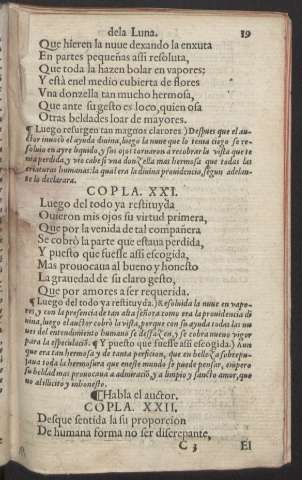 dela Luna. 19
Que hieren la nuue dexando la enxuta
En partes pequeñas assi resoluta,
Que toda la hazen bolar en vapores:
Y està enel medio cubierta de flores
Vna donzella tan mucho hermosa,
Que ante su gesto es loco, quien osa
Otras beldades loar de mayores.
¶ Luego resurgen tan magnos clarores) Despues que el au-
ctor inuocò el ayuda diuina, luego la nuue que lo tenia ciego se re-
soluio en ayre liquido, y sus ojos tornaron a recobrar la vista que te
nia perdida, y vio cabe si vna donzella mas hermosa que todas las
criaturas humanas: la qual era la diuina prouidencia, segun adelan-
te la declarara.
COPLA. XXI.
Luego del todo ya restituyda
Ouieron mis ojos su virtud primera,
Que por la venida de tal compañera
Se cobrò la parte que estaua perdida,
Y puesto que fuesse assi escogida,
Mas prouocaua al bueno y honesto
La grauedad de su claro gesto,
Que por amores a ser requerida.
¶ Luego del todo ya restituyda.) Resoluida la nuue en vapo-
res, y con la presencia de tan alta señora como era la prouidencia di
uina, luego el auctor cobrò la vista, porque con su ayuda todas las nu
ues del entendimiento humano se desfazen, y se cobra nueuo vigor
para la especulaciõ. ¶ Y puesto que fuesse assi escogida.) Aun
que era tan hermosa y de tanta perficion, que en belleza sobrepu-
jaua toda la hermosura que eneste mundo se puede pensar, empero
su beldad mas prouocaua a admiraciõ, y a limpio y sancto amor, que
no al illicito y inhonesto.
¶ Habla el auctor.
COPLA. XXII.
Desque sentida la su proporcion
De humana forma no ser discrepante,
C 3 El